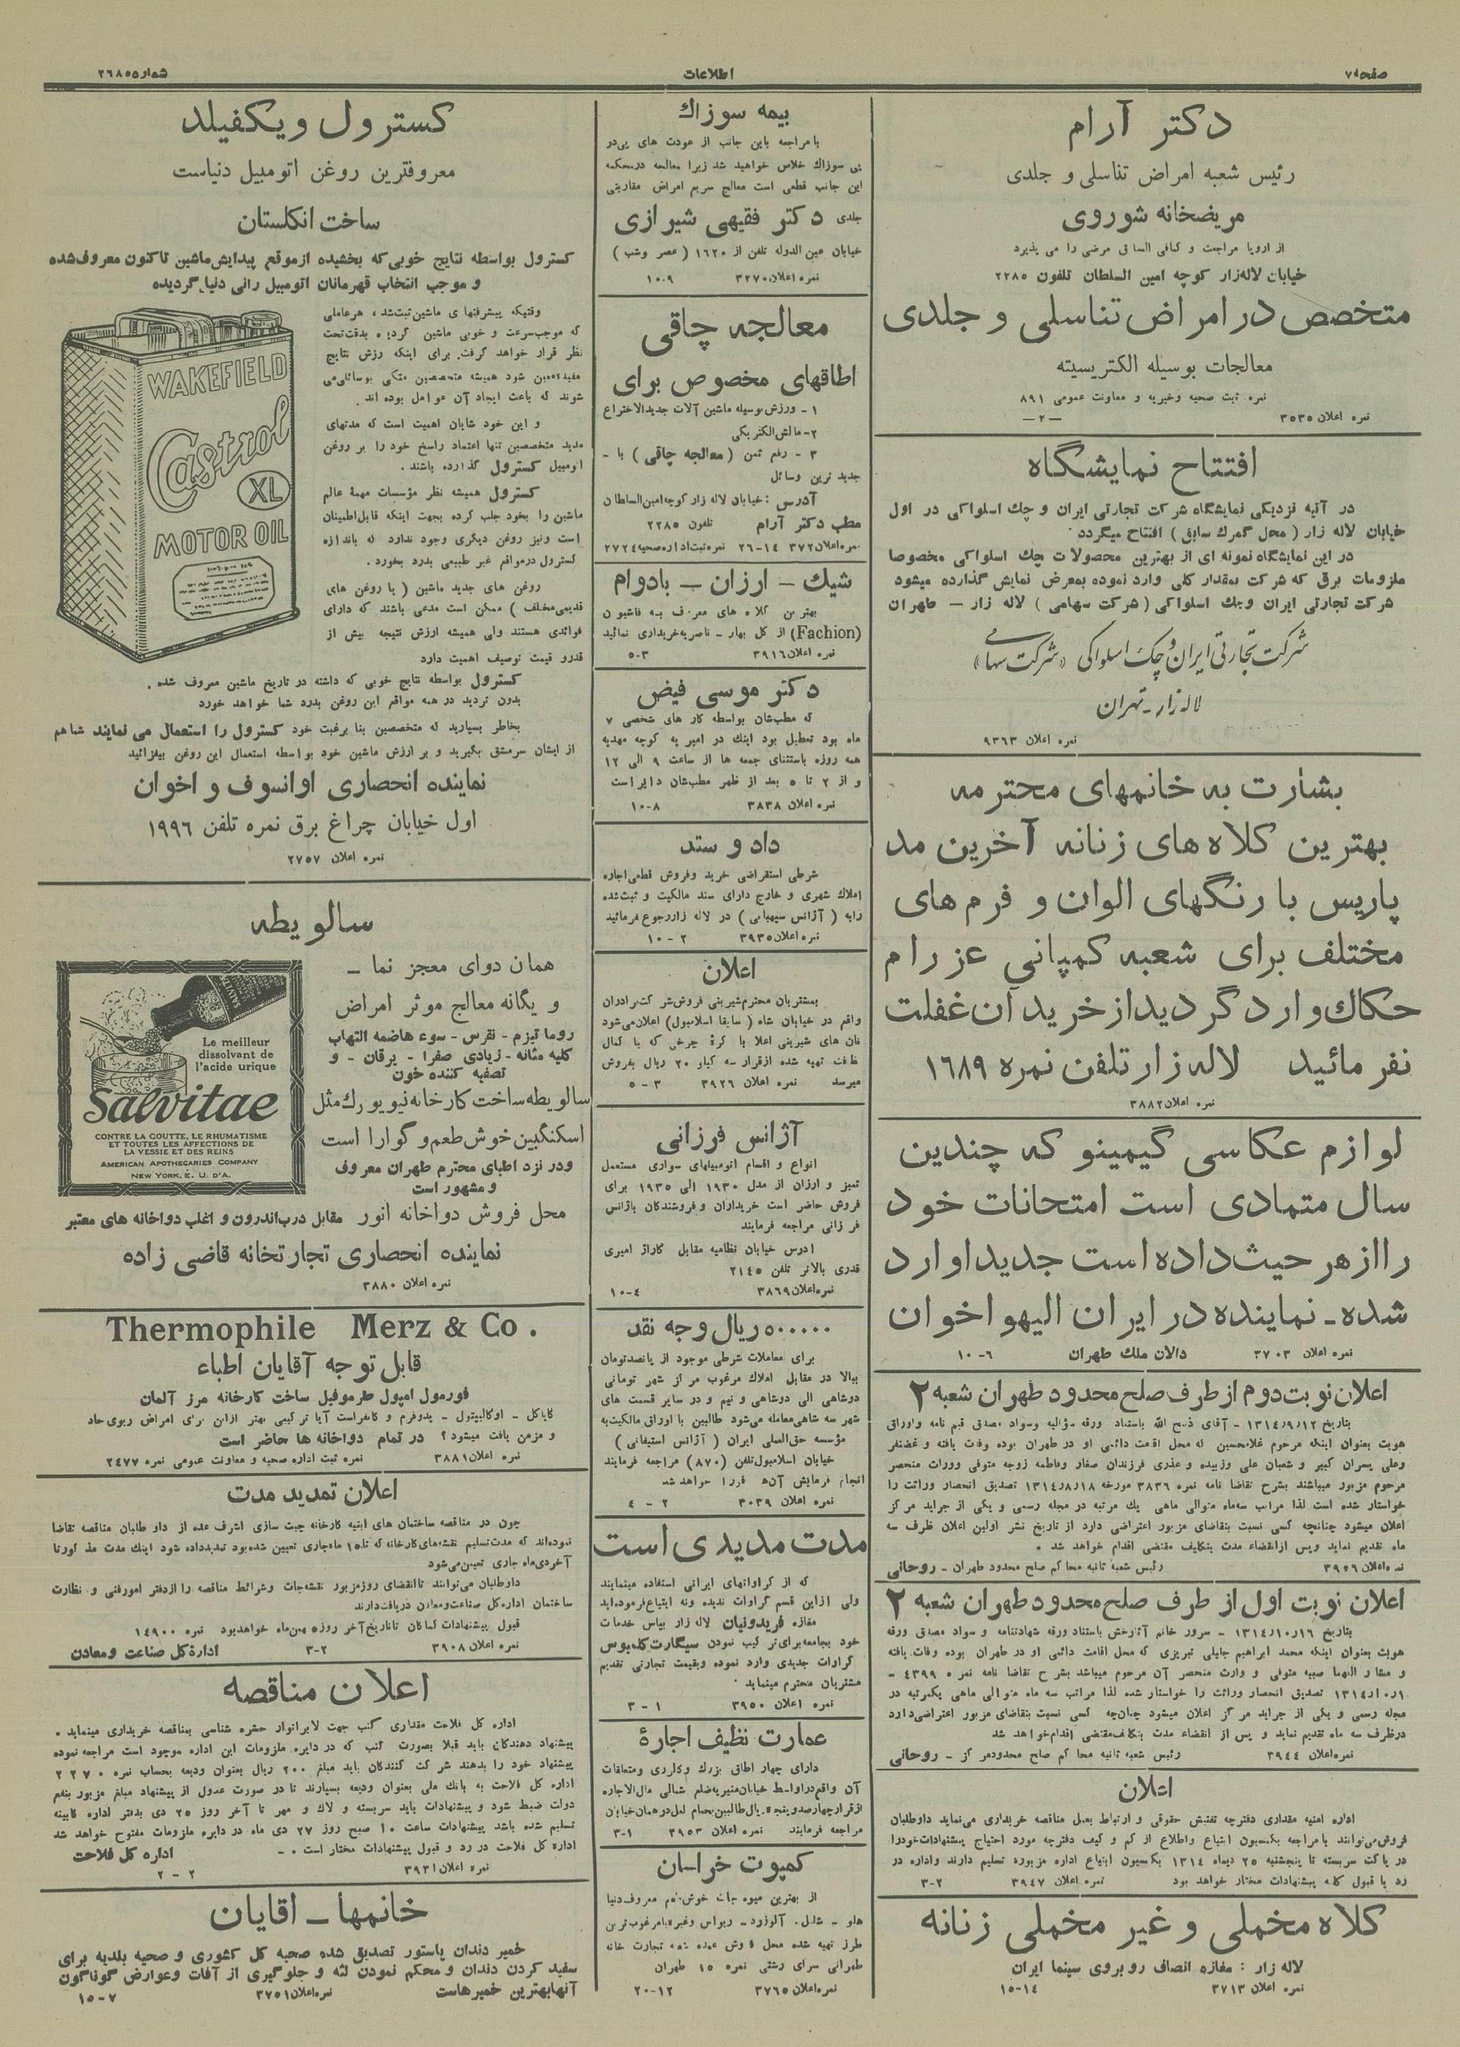 صفحه ۷
اطلاعات
شماره ۲۶۸۰۵
دکتر آرام
رئیس شعبه امراض تناسلی و جلدی
مریضخانه شوروی
از اروپا مراجعت و کافی السابق مرضی را می پذیرد
خیابان لاله‌زار کوچه امین السلطان تلفون ۲۲۸۵
متخصص در امراض تناسلی و جلدی
معالجات بوسیله الکتریسیته
نمره ثبت صحیه وخیریه و معاونت عمومی ۸۹۱
نمره اعلان ۳۵۳۵ —۲—
افتتاح نمایشگاه
در آتیه نزدیکی نمایشگاه شرکت تجارتی ایران و چك اسلواکی در اول
خیابان لاله زار ( محل گمرك سابق ) افتتاح میگردد.
در این نمایشگاه نمونه ای از بهترین محصولات چك اسلواکی مخصوصا
ملزومات برق که شرکت بمقدار کلی وارد نموده بمعرض نمایش گذارده میشود
شرکت تجارتی ایران وچك اسلواکی ( شرکت سهامی ) لاله زار — طهران
شرکت تجارتی ایران و چک اسلواکی «شرکت سهامی»
لاله زار - تهران
نمره اعلان ۹۳۶۳
بشارت به خانمهای محترمه
بهترین کلاه های زنانه آخرین مد
پاریس با رنگهای الوان و فرم های
مختلف برای شعبه کمپانی عزرام
حکاك وارد گردید از خرید آن غفلت
نفرمائید لاله زار تلفن نمره ۱۶۸۹
نمره اعلان ۳۸۸۲
لوازم عکاسی گیمینو که چندین
سال متمادی است امتحانات خود
را از هر حیث داده است جدیدا وارد
شده - نماینده در ایران الیهو اخوان
نمره اعلان ۳۷۰۳ دالان ملك طهران ۶-۱۰
اعلان نوبت دوم از طرف صلح محدود طهران شعبه ۲
بتاریخ ۱۳۱۴/۹/۱۲ - آقای ذبیح الله باستناد ورقه سؤالیه وسواد مصدق قیم نامه واوراق
هویت بعنوان اینکه مرحوم غلامحسین که محل اقامت دائمی او در طهران بوده وفات یافته و غضنفر
وعلی پسران کبیر و شعبان علی وزبیده و عذری فرزندان صغار وفاطمه زوجه متوفی وورات منحصر
مرحوم مزبور میباشند بشرح تقاضا نامه نمره ۳۸۳۶ مورخه ۱۳۱۴/۸/۱۸ تصدیق انحصار وراثت را
خواستار شده است لذا مراتب سه‌ماه متوالی ماهی یك مرتبه در مجله رسمی و یکی از جراید مرکز
اعلان میشود چنانچه کسی نسبت بتقاضای مزبور اعتراضی دارد از تاریخ نشر اولین اعلان ظرف سه
ماه تقدیم نماید وپس ازانقضاء مدت بتکلیف مقتضی اقدام خواهد شد .
نمره اعلان ۳۹۵۶ رئیس شعبه ثانیه محاکم صلح محدود طهران - روحانی
اعلان نوبت اول از طرف صلح محدود طهران شعبه ۲
بتاریخ ۱۳۱۴/۱۰/۱۶ - سرور خانم باستناد ورقه شهادتنامه و سواد مصدق ورقه
هویت بعنوان اینکه محمد ابراهیم جلیلی تبریزی که محل اقامت دائمی او در طهران بوده وفات یافته
و مشارالیها صبیه متوفی و وارث منحصر آن مرحوم میباشد بشرح تقاضا نامه نمره ۴۳۹۹ -
تصدیق انحصار وراثت را خواستار شده لذا مراتب سه ماه متوالی ماهی یکمرتبه در
مجله رسمی و یکی از جراید مرکز اعلان میشود چنانچه کسی نسبت بتقاضای مزبور اعتراضی‌دارد
درظرف سه ماه تقدیم نماید و پس از انقضاء مدت بتکلیف‌مقتضی اقدام‌خواهد شد
نمره‌اعلان ۳۹۴۴ رئیس شعبه ثانیه محاکم صلح محدودمرکز - روحانی
اعلان
اداره امنیه مقداری دفترچه تفتیش حقوقی و ارتباط بعمل مناقصه خریداری می‌نماید داوطلبان
فروش‌می‌توانند بامراجعه بکمسیون ابتیاع واطلاع از کم و کیف دفترچه مورد احتیاج پیشنهادات‌خودرا
در پاکت سربسته تا پنجشنبه ۲۵ دیماه ۱۳۱۴ بکمسیون ابتیاع اداره مزبوره تسلیم دارند واداره در
رد یا قبول کلیه پیشنهادات مختار خواهد بود نمره اعلان ۳۹۴۷ ۲-۳
کلاه مخملی و غیر مخملی زنانه
لاله زار : مغازه انصاف روبروی سینما ایران
نمره اعلان ۳۷۱۳ ۱۴-۱۵
بیمه سوزاك
با مراجعه باین جانب از عودت های پی‌در
پی سوزاك خلاص خواهید شد زیرا معالجه درمحکمه
این جانب قطعی است معالج سریع امراض مقاربتی
جلدی دکتر فقیهی شیرازی
خیابان عین الدوله تلفن از ۱۶۲۰ ( عصر وشب )
نمره اعلان ۳۲۷۰ ۹-۱۰
معالجه چاقی
اطاقهای مخصوص برای
۱ - ورزش بوسیله ماشین آلات جدیدالاختراع
۲- مالش الکتریکی
۳ - رفع سمن ( معالجه چاقی ) با -
جدید ترین وسائل
آدرس : خیابان لاله زار کوچه امین‌السلطان
مطب دکتر آرام تلفون ۲۲۸۵
نمره‌اعلان ۳۷۲ ۱۴-۲۶ نمره‌ثبت‌اداره‌صحیه ۲۷۲۴
شیك — ارزان — بادوام
بهترین کلاه های معروف به فاشیون
(Fachion) از کل بهار - ناصریه‌خریداری نمائید
نمره اعلان ۳۹۱۶ ۳-۵
دکتر موسی فیض
که مطب‌شان بواسطه کار های شخصی ۷
ماه بود تعطیل بود اینك در امیریه کوچه مهدیه
همه روزه باستثنای جمعه ها از ساعت ۹ الی ۱۲
و از ۲ تا ۵ بعد از ظهر مطب‌شان دایر است
نمره اعلان ۳۸۳۸ ۸-۱۰
داد و ستد
شرطی استقراضی خرید وفروش قطعی اجاره
املاك شهری و خارج دارای سند مالکیت و ثبت‌شده
رابه ( آژانس سیهیانی ) در لاله زاررجوع فرمائید
نمره اعلان ۳۹۳۵ ۲ - ۱۰
اعلان
بمشتریان محترم‌شیرینی فروشی‌شرکت‌برادران
واقع در خیابان شاه ( سابقا اسلامبول ) اعلان‌می‌شود
نان های شیرینی اعلا با کرهٔ چرخی که با کمال
نظافت تهیه شده ازقرار سه کیلو ۲۰ ریال بفروش
میرسد نمره اعلان ۳۹۲۶ ۳ - ۵
آژانس فرزانی
انواع و اقسام اتومبیلهای سواری مستعمل
تمیز و ارزان از مدل ۱۹۳۰ الی ۱۹۳۵ برای
فروش حاضر است خریداران وفروشندگان باژانس
فرزانی مراجعه فرمایند
ادرس خیابان نظامیه مقابل گاراژ امیری
قدری بالاتر تلفن ۲۱۴۵
نمره‌اعلان ۳۸۶۹ ۴-۱۰
۵۰۰۰۰۰ ریال وجه نقد
برای معاملات شرطی موجود از پانصدتومان
ببالا در مقابل املاك مرغوب مرکز شهر تومانی
دوشاهی الی دوشاهی و نیم و در سایر قسمت های
شهر سه شاهی معامله می‌شود طالبین با اوراق مالکیت‌به
مؤسسه حق‌العملی ایران ( آژانس استیفانی )
خیابان اسلامبول‌تلفن (۸۷۰) مراجعه فرمایند
انجام فرمایش آن‌ها فورا خواهد شد
نمره اعلان ۳۰۳۹ ۲ - ۴
مدت مدیدی است
که از کراواتهای ایرانی استفاده مینمایند
ولی ازاین قسم کراوات ندیده ونه ابتیاع‌فرموده‌اید
مغازه فریدونیان لاله زار بپاس خدمات
خود بجامعه برای‌ترکیب نمودن سیگارت کله‌بوس
کراوات جدیدی وارد نموده وبقیمت تجارتی تقدیم
مشتریان محترم مینماید .
نمره اعلان ۳۹۵۰ ۱ - ۳
عمارت نظیف اجارهٔ
دارای چهار اطاق بزرك وگاراژی ومتعلقات
آن واقع‌دراواسط خیابان‌منیریه‌ضلع شمالی مال‌الاجاره
ازقرارچهارصدوپنجاه‌ریال‌طالبین‌بحمام لعل‌درهمان‌خیابان
مراجعه فرمایند نمره اعلان ۳۹۵۳ ۱-۳
کمپوت خراسان
از بهترین میوه جات خوش‌طعم معروف‌دنیا
هلو - شلیل. آلوزرد - ریواس وغیره‌بامرغوب‌ترین
طرز تهیه شده محل فروش عمده شعبه تجارت خانه
طهرانی سرای رشتی نمره ۱۵ طهران
نمره‌اعلان ۳۷۶۵ ۱۲-۲۰
کسترول ویکفیلد
معروفترین روغن اتومبیل دنیاست
ساخت انگلستان
کسترول بواسطه نتایج خوبی‌که بخشیده ازموقع پیدایش‌ماشین تاکنون معروف‌شده
و موجب انتخاب قهرمانان اتومبیل رانی دنیا گردیده
WAKEFIELD
Castrol
XL
MOTOR OIL
وقتیکه پیشرفتهای ماشین‌ثبت‌شد، هرعاملی
که موجب‌سرعت و خوبی ماشین گردیده بدقت‌تحت
نظر قرار خواهد گرفت. برای اینکه ورزش نتایج
مفیدتضمین شود همیشه متخصصین متکی بوسائلی‌می
شوند که باعث ایجاد آن عوامل بوده اند.
و این خود شایان اهمیت است که مدتهای
مدید متخصصین تنها اعتماد راسخ خود را بر روغن
اتومبیل کسترول گذارده باشند.
کسترول همیشه نظر مؤسسات مهمهٔ عالم
ماشین را بخود جلب کرده بجهت اینکه قابل‌اطمینان
است ونیز روغن دیگری وجود ندارد که باندازه
کسترول درمواقع غیر طبیعی بدرد بخورد.
روغن های جدید ماشین ( یا روغن های
قدیمی‌مختلف ) ممکن است مدعی باشند که دارای
فوائدی هستند ولی همیشه ارزش نتیجه بیش از
قدرو قیمت توصیف اهمیت دارد
کسترول بواسطه نتایج خوبی که داشته در تاریخ ماشین معروف شده.
بدون تردید در همه مواقع این روغن بدرد شما خواهد خورد
بخاطر بسپارید که متخصصین بنا برغبت خود کسترول را استعمال می نمایند شماهم
از ایشان سرمشق بگیرید و بر ارزش ماشین خود بواسطه استعمال این روغن بیفزائید
نماینده انحصاری اوانسوف و اخوان
اول خیابان چراغ برق نمره تلفن ۱۹۹۶
نمره اعلان ۲۷۵۷
سالویطه
همان دوای معجز نما —
و یگانه معالج موثر امراض
روماتیزم - نقرس - سوء هاضمه التهاب
کلیه مثانه - زیادی صفرا - یرقان - و
تصفیه کننده خون
سالویطه ساخت کارخانه نیویورك مثل
اسکنگبین خوش طعم و گوارا است
ودر نزد اطبای محترم طهران معروف
و مشهور است
Le meilleur
dissolvant de
l'acide urique
Salvitae
CONTRE LA GOUTTE, LE RHUMATISME
ET TOUTES LES AFFECTIONS DE
LA VESSIE ET DES REINS
AMERICAN APOTHECARIES COMPANY
NEW YORK, É. U. D'A.
محل فروش دواخانه انور مقابل درب‌اندرون و اغلب دواخانه های معتبر
نماینده انحصاری تجارتخانه قاضی زاده
نمره اعلان ۳۸۸۰
Thermophile Merz & Co.
قابل توجه آقایان اطباء
فورمول امپول طرموفیل ساخت کارخانه مرز آلمان
گایاکل - اوکالیپتول - یدوفرم و کامفراست آیا ترکیبی بهتر ازاین برای امراض ریوی‌حاد
و مزمن یافت میشود؟ در تمام دواخانه ها حاضر است
نمره اعلان ۳۸۸۱ نمره ثبت اداره صحیه و معاونت عمومی نمره ۲۴۷۷
اعلان تمدید مدت
چون در مناقصه ساختمان های ابنیه کارخانه چیت سازی اشرف عده از داوطلبان مناقصه تقاضا
نموده‌اند که مدت‌تسلیم نقشه‌های‌کارخانه که تا۱۵ ماه‌جاری تعیین شده‌بود تمدیدداده شود اینك مدت مذکورتا
آخردی‌ماه جاری تعیین‌می‌شود
داوطلبان می‌توانند تاانقضای روزمزبور نقشه‌جات وشرائط مناقصه را ازدفتر امورفنی و نظارت
ساختمان اداره‌کل صناعت‌ومعادن دریافت‌دارند
قبول پیشنهادات کماکان تاتاریخ‌آخر روز۵بهمن‌ماه خواهدبود نمره ۱۴۹۰۰
نمره اعلان ۳۹۰۸ ۲-۳ اداره‌کل صناعت ومعادن
اعلان مناقصه
اداره کل فلاحت مقداری کتب جهت لابراتوار حشره شناسی بمناقصه خریداری مینماید .
پیشنهاد دهندگان باید قبلا بصورت کتب که در دایره ملزومات این اداره موجود است مراجعه نموده
پیشنهاد خود را بدهند شرکت کنندگان باید مبلغ ۲۰۰ ریال بعنوان ودیعه بحساب نمره ۲۲۷۰
اداره کل فلاحت به بانك ملی بعنوان ودیعه بسپارند تا در صورت عدول از پیشنهاد مبلغ مزبور بنفع
دولت ضبط شود و پیشنهادات باید سربسته و لاك و مهر تا آخر روز ۲۵ دی بدفتر اداره کابینه
تسلیم شده باشد پیشنهادات ساعت ۱۰ صبح روز ۲۷ دی ماه در دایره ملزومات مفتوح خواهد شد
اداره کل فلاحت در رد و قبول پیشنهادات مختار است .-
نمره اعلان ۳۹۳۱ اداره کل فلاحت
۲ - ۲
خانمها - اقایان
خمیر دندان پاستور تصدیق شده صحیه کل کشوری و صحیه بلدیه برای
سفید کردن دندان و محکم نمودن لثه و جلوگیری از آفات وعوارض گوناگون
آنهابهترین خمیرهاست نمره‌اعلان ۳۷۵۱ ۷-۱۵